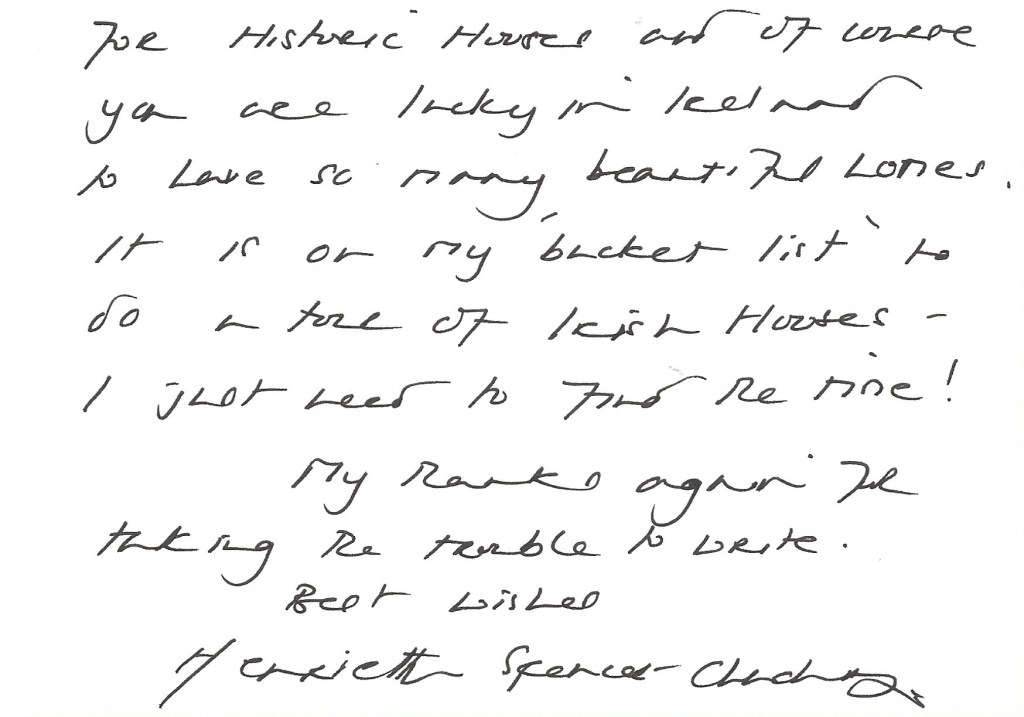 for Historic Houses and of course
you are lucky in Ireland
to have so many beautiful homes.
It is on my 'bucket list' to
do a tour of Irish Houses -
I just need to find the time!
My thanks again for
taking the trouble to write.
Best wishes
Henrietta Spencer-Churchill